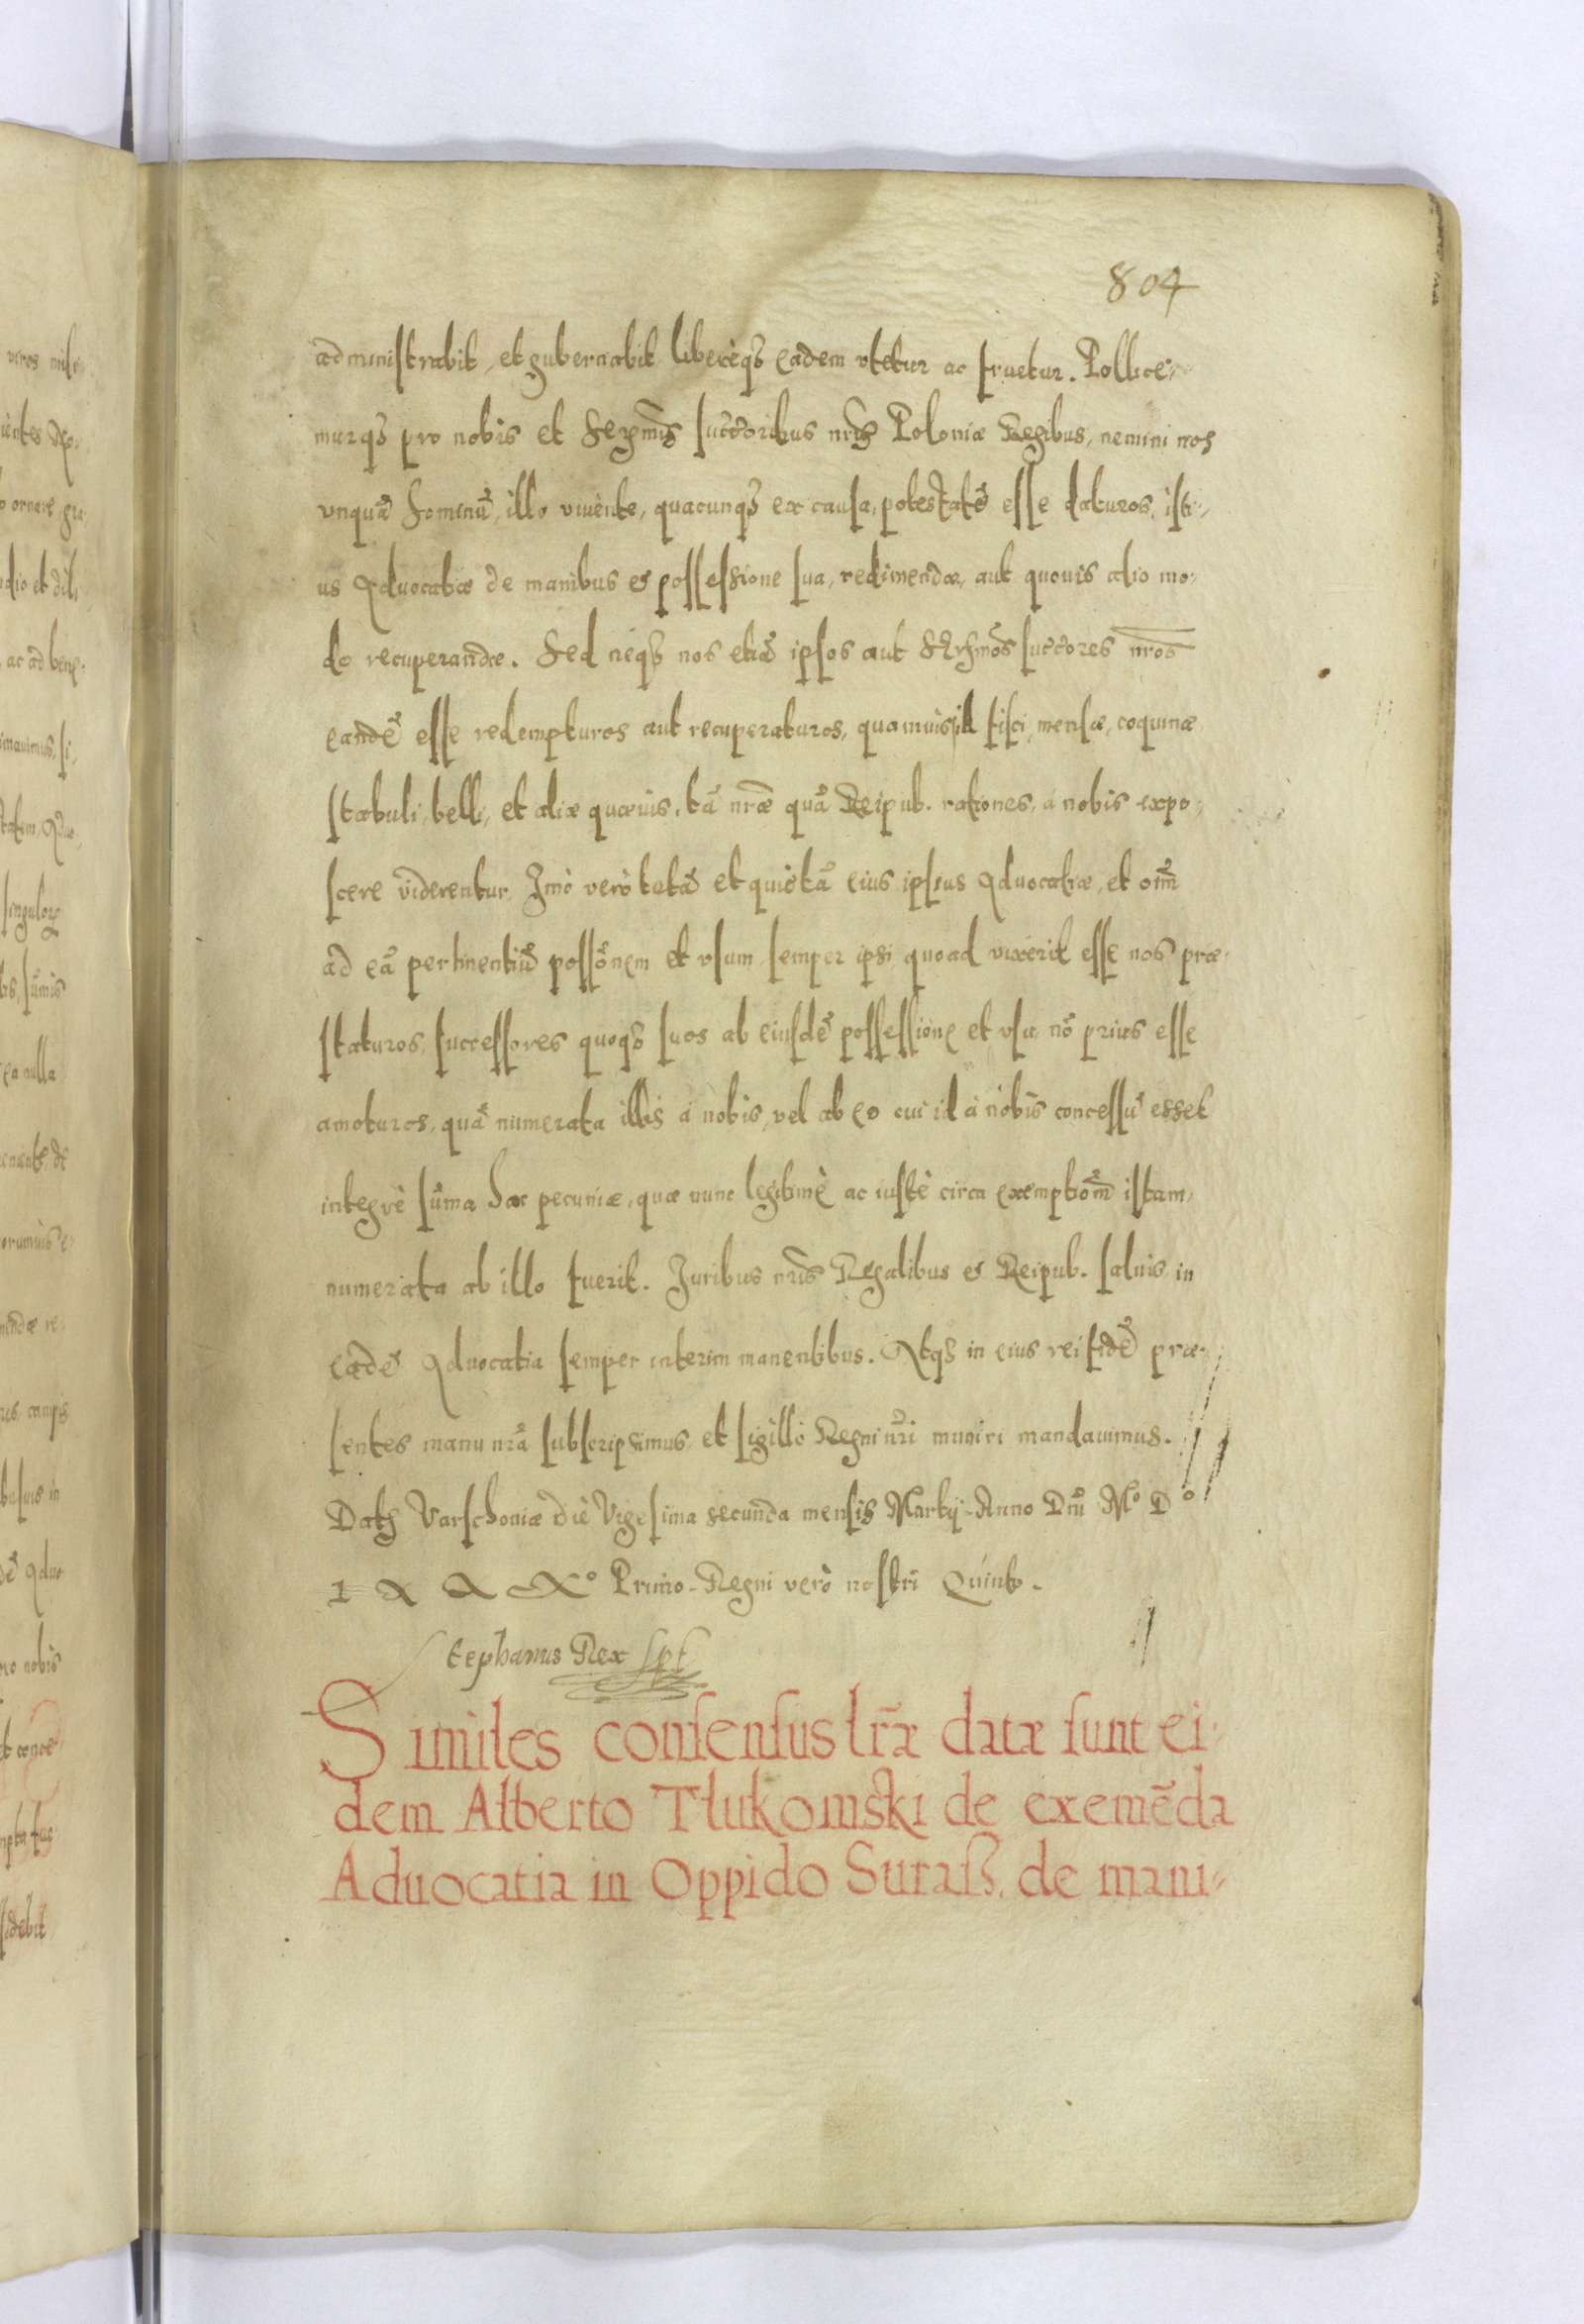 804
administrabit, et gubernabit libereq3 eadem vtetur ac fruetur. Pollice-
murq3 pro nobis et Sermis succoribus nris Poloniæ Regibus, nemini nos
vnquā hominū, illo viuente, quacunq3 ex causa, potestatē esse daturos, isti-
us Aduocatiæ de manibus et possessione sua, redimendæ, aut quouis alio mo-
do recuperandæ. Sed neq3 nos etiā ipsos aut Sermos succores nros
eandē esse redempturos aut recuperaturos, quamuis id fisci, mensæ, coquinæ
stabuli, belli, et aliæ quæuis, tā nræ quā Reipub. rationes, a nobis expo-
scere viderentur. Imò verò totā et quietā eius ipsius Aduocatiæ, et om̄
ad eā pertinentiū possōnem et vsum semper ipsi quoad vixerit esse nos præ-
staturos, successores quoq3 suos ab eiusdē possessione et vsu nō prius esse
amoturos, quā numerata illis à nobis, vel ab eo cui id à nobis concessū esset
integrè sūma hæc pecuniæ, quæ nunc legitimè ac iustè circa exemptionē istam,
numerata ab illo fuerit. Iuribus nris Regalibus et Reipub. saluis in
eadē Aduocatia semper interim manentibus. Atq3 in eius rei fidē præ-
sentes manu nrā subscripsimus, et sigillo Regni nri muniri mandauimus.
Dat3 Varschouiæ die Vigesima secunda mensis Martij Anno Dni Mº Dº
LXXXº Primo Regni verò nostri Quinto.
Stephanus Rex sst
Similes consensus lræ datæ sunt ei-
dem Alberto Tłukomski de eximēda
Aduocatia in Oppido Suraß. de mani-